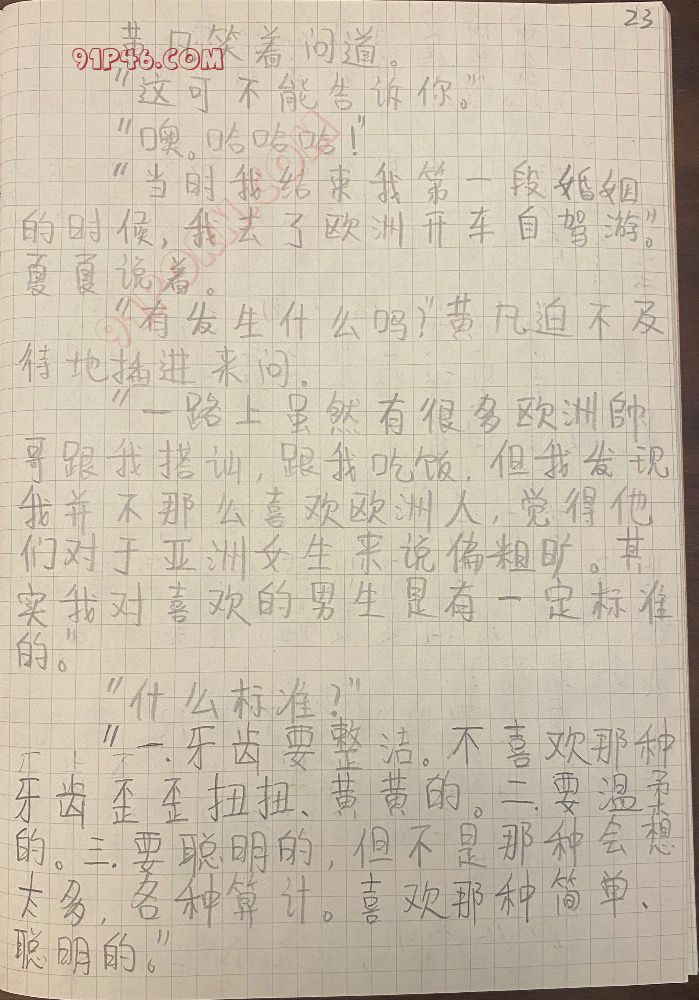 23
黄凡笑着问道。
91P46.COM
"这可不能告诉你。"
"噢。哈哈哈!"
"当时我结束我第一段婚姻
的时候,我去了欧洲开车自驾游。"
夏夏说着。
"有发生什么吗?"黄凡迫不及
待地插进来问。
"一路上虽然有很多欧洲帅
哥跟我搭讪,跟我吃饭,但我发现
我并不那么喜欢欧洲人,觉得他
们对于亚洲女生来说偏粗旷。其
实我对喜欢的男生是有一定标准
的。"
"什么标准?"
"一.牙齿要整洁。不喜欢那种
牙齿歪歪扭扭、黄黄的。二.要温柔
的。三.要聪明的,但不是那种会想
太多,各种算计。喜欢那种简单、
聪明的。"